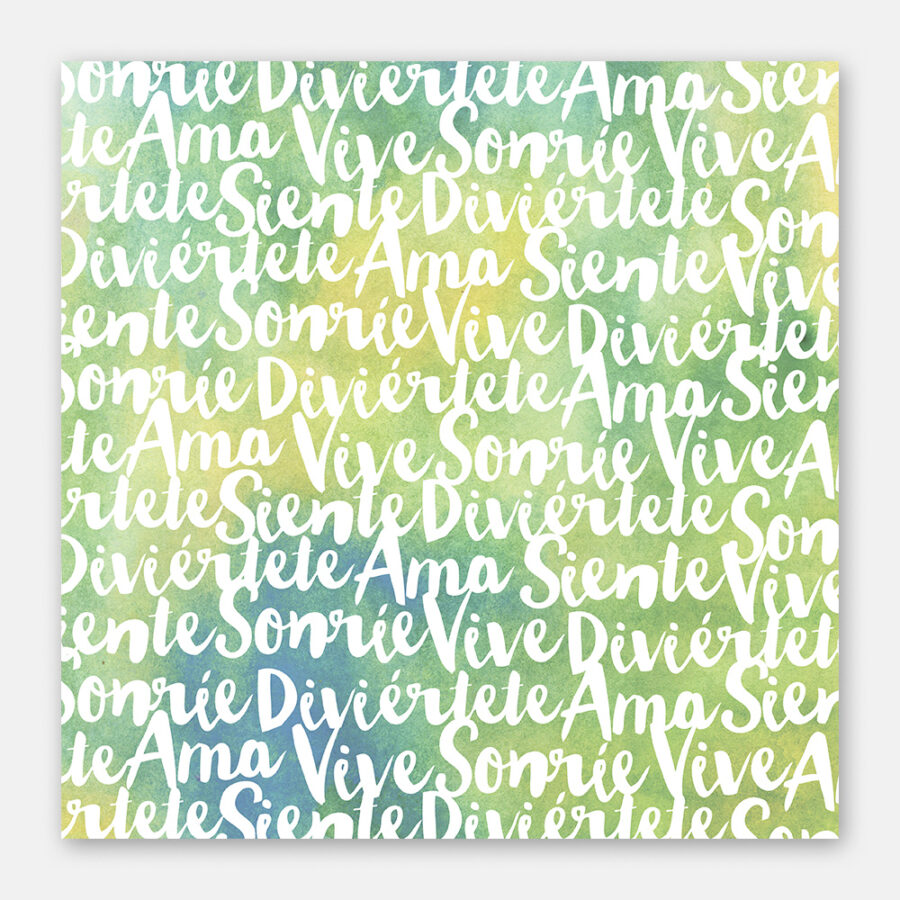 Sonríe Diviértete Ama Sien
te Ama Vive Sonríe Vive A
értete Siente Diviértete Son
Diviértete Ama Siente Vive
iente Sonríe Vive Diviértet
Sonríe Diviértete Ama Sien
te Ama Vive Sonríe Vive A
értete Siente Diviértete Son
Diviértete Ama Siente Vive
iente Sonríe Vive Diviértete
Sonríe Diviértete Ama Sien
te Ama Vive Sonríe Vive A
értete Siente Diviértete Son